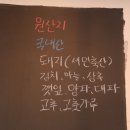 원산지
국내산
돼지 (서민흑산)
김치, 마늘, 상추
깻잎 양파, 대파
고추, 고춧가루